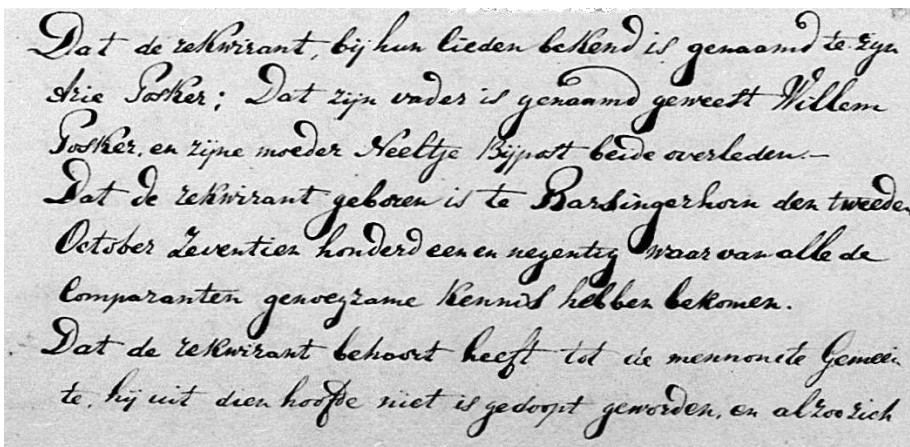 Dat de rekwirant, bij hun lieden bekend is genaamd te zijn
Arie Posker; Dat zijn vader is genaamd geweest Willem
Posker, en zijne moeder Neeltje Bijpost beide overleden.—
Dat de rekwirant geboren is te Barsingerhorn den tweeden
October Zeventien honderd een en negentig waar van alle de
Comparanten genoegzame kennis hebben bekomen.
Dat de rekwirant behoort heeft tot de mennonite Gemeen
te, hij uit dien hoofde niet is gedoopt geworden, en alzoo zich